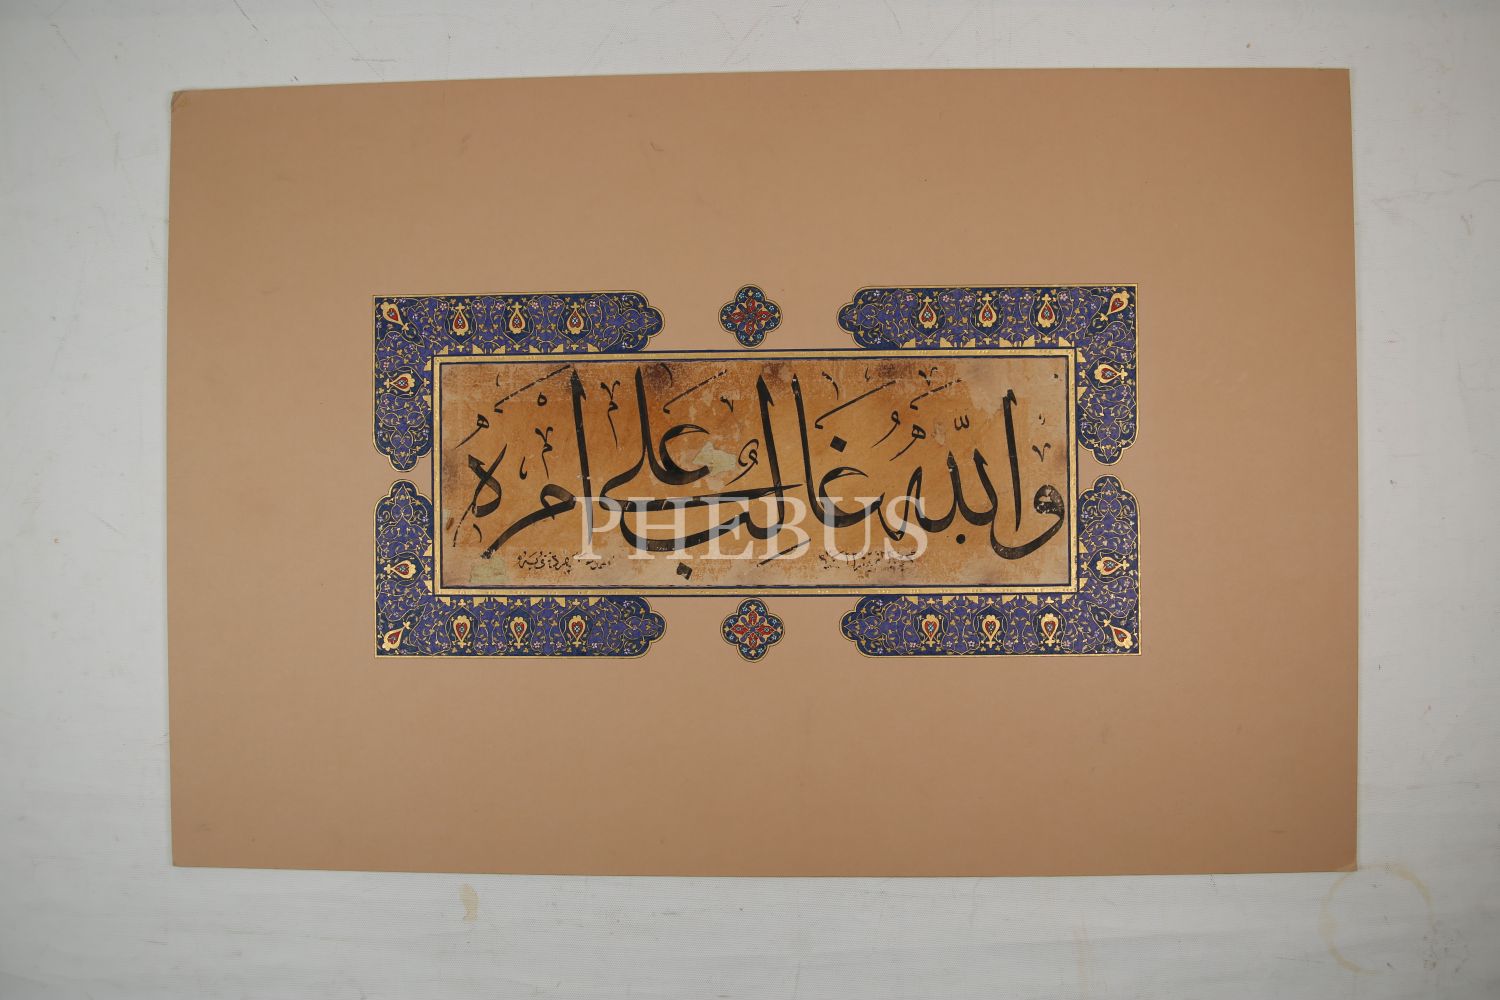 والله غالب على امره
PHEBUS